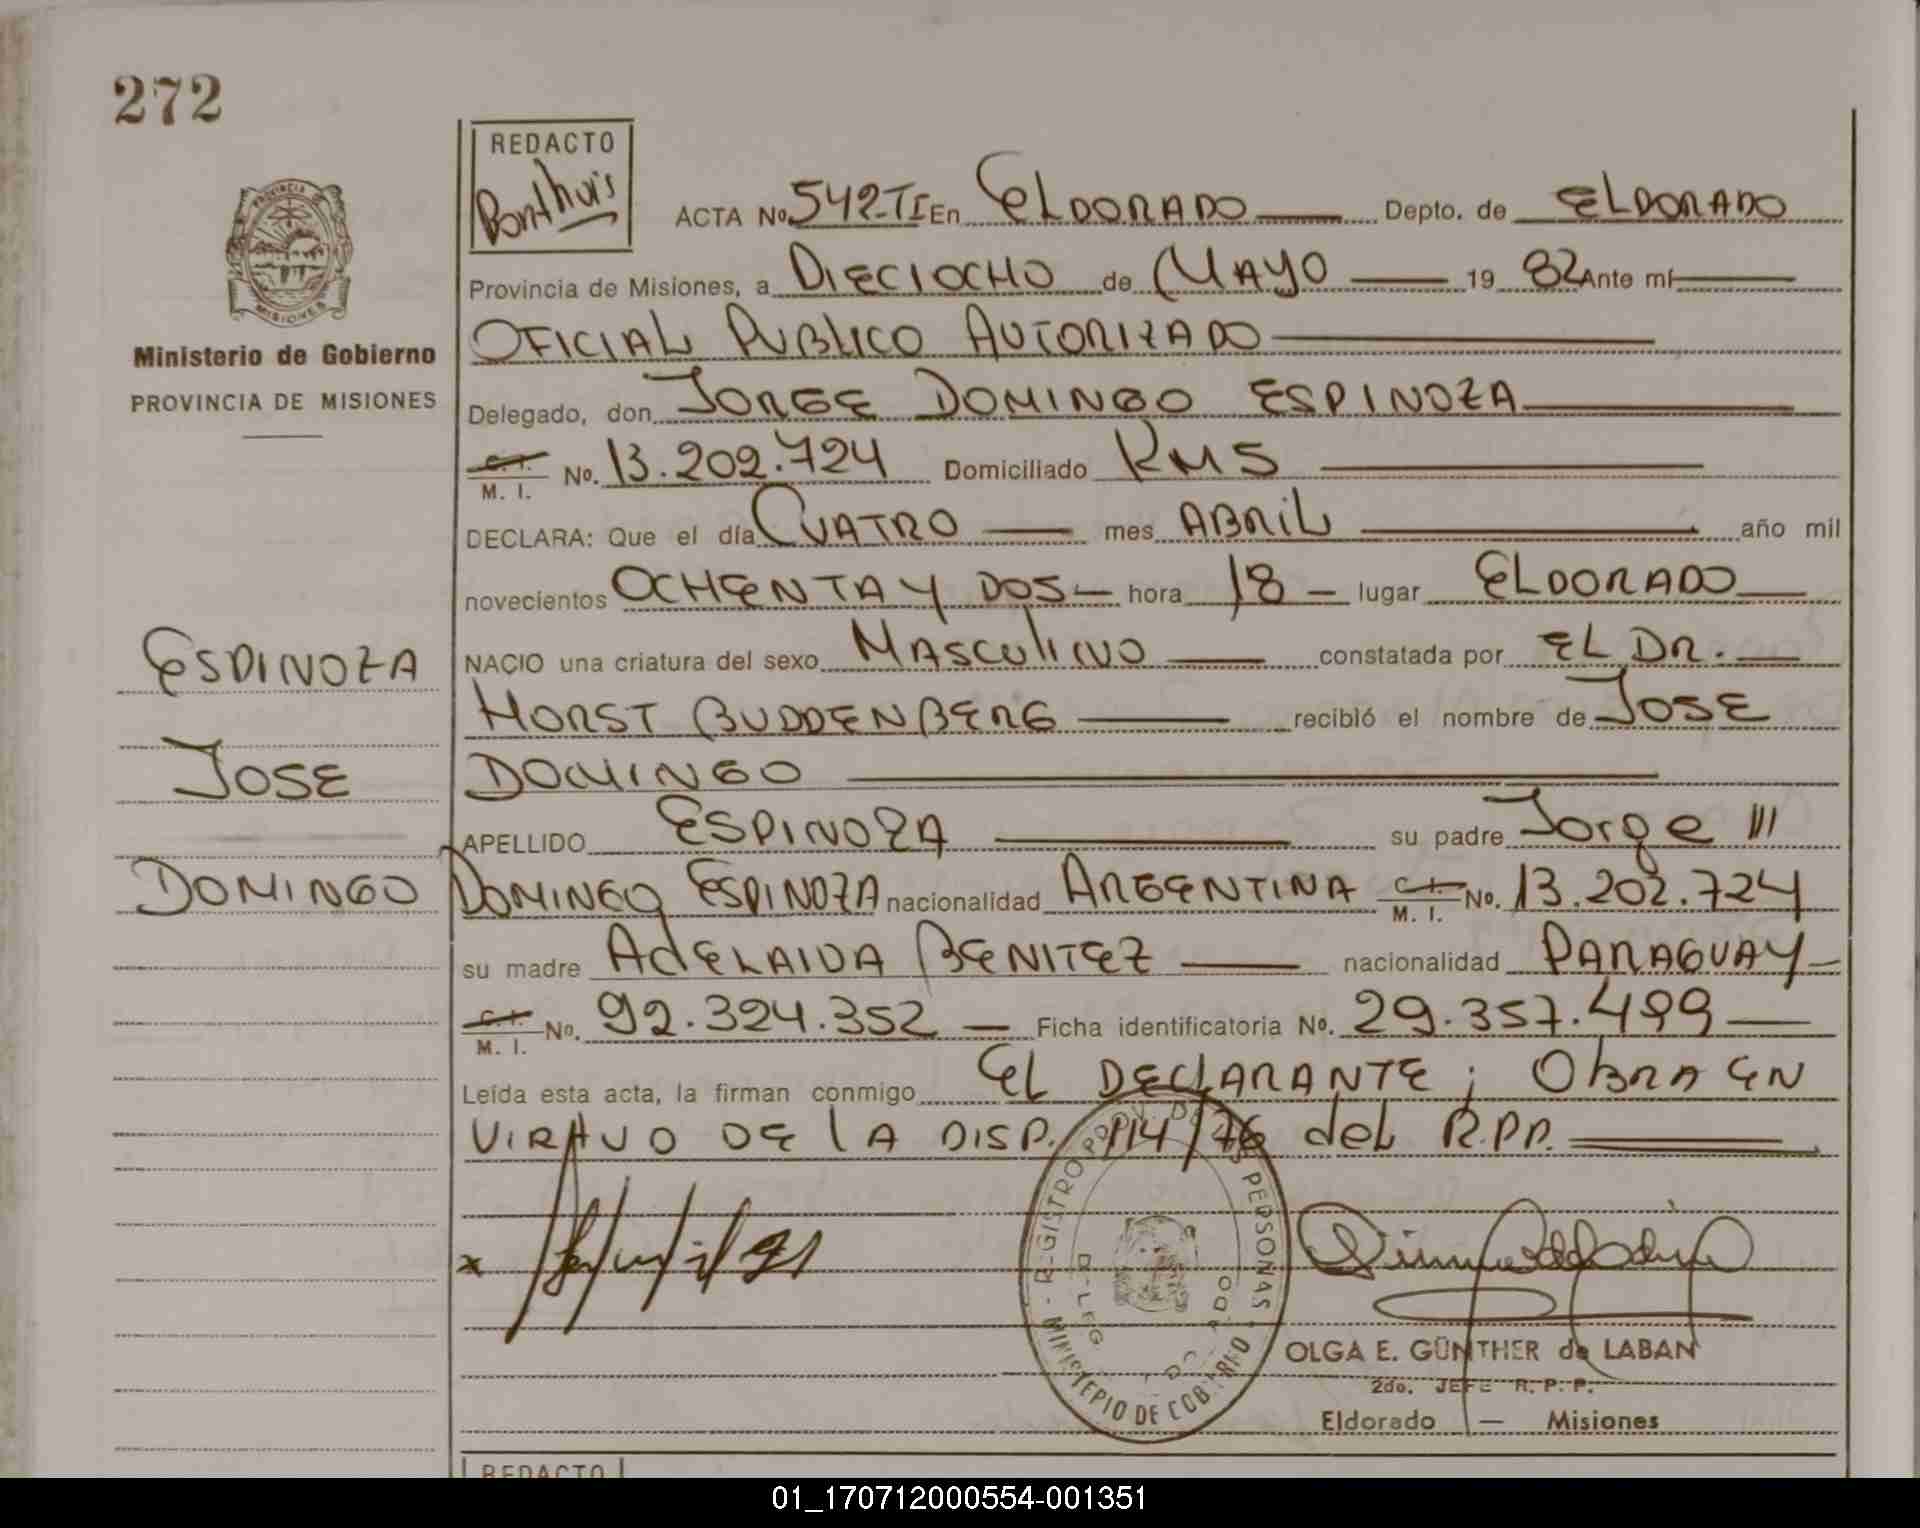 272
REDACTO
Bonthuis
ACTA No. 542-TI En ELDORADO Depto. de ELDORADO
Provincia de Misiones, a DIECIOCHO de MAYO 19 82 Ante mí
OFICIAL PUBLICO AUTORIZADO
Delegado, don JORGE DOMINGO ESPINOZA
C. I. M. I. No. 13.202.724 Domiciliado KM5
DECLARA: Que el día CUATRO mes ABRIL año mil
novecientos OCHENTA Y DOS hora 18 lugar ELDORADO
NACIO una criatura del sexo MASCULINO constatada por EL DR.
HORST BUDDENBERG recibió el nombre de JOSE
DOMINGO
APELLIDO ESPINOZA su padre Jorge III
DOMINGO ESPINOZA nacionalidad ARGENTINA C. I. M. I. No. 13.202.724
su madre ADELAIDA BENITEZ nacionalidad PARAGUAY
C. I. M. I. No. 92.324.352 Ficha identificatoria No. 29.357.499
Leída esta acta, la firman conmigo EL DECLARANTE; OBRA EN
VIRTUD DE LA DISP. 114/76 del R.P.P.
Ministerio de Gobierno
PROVINCIA DE MISIONES
ESPINOZA
JOSE
DOMINGO
PROVINCIA
MISIONES
REGISTRO PROV. DE LAS PERSONAS
MINISTERIO DE GOBIERNO
OLGA E. GÜNTHER de LABAN
2do. JEFE R. P. P.
Eldorado — Misiones
REDACTO
01_170712000554-001351